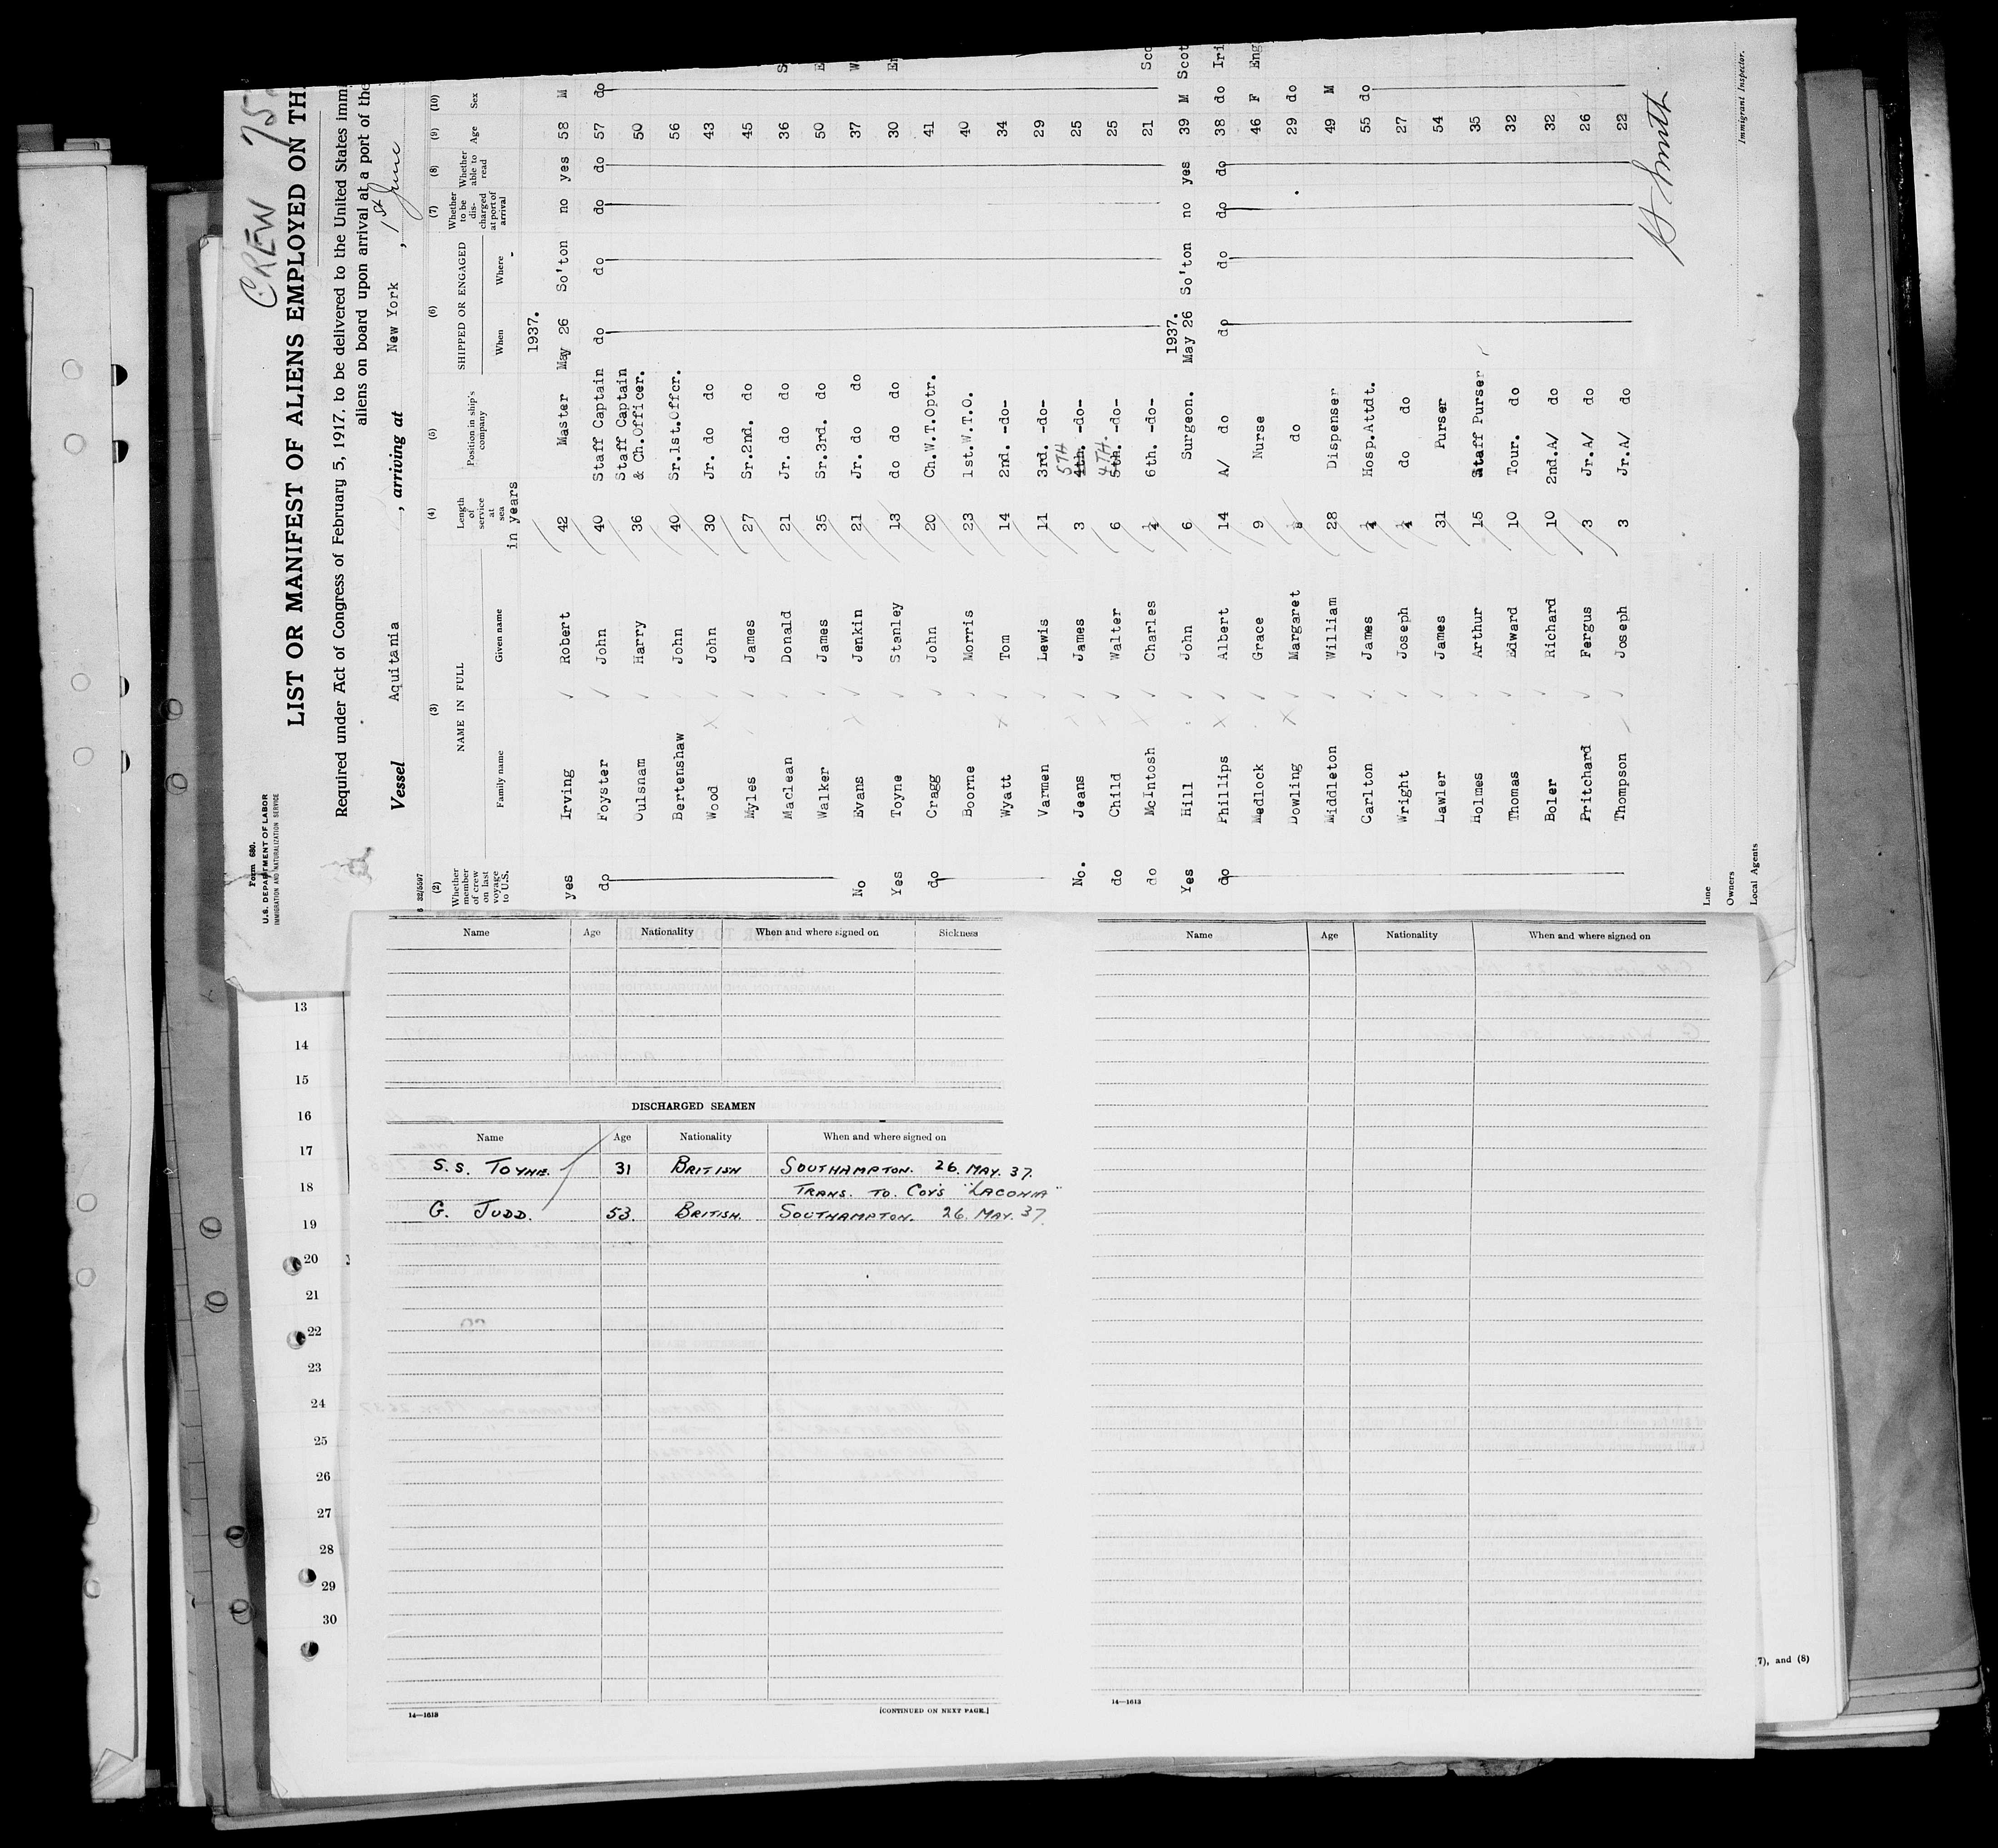 Form 680.
U.S. DEPARTMENT OF LABOR
IMMIGRATION AND NATURALIZATION SERVICE
CREW 75
LIST OR MANIFEST OF ALIENS EMPLOYED ON TH
Required under Act of Congress of February 5, 1917, to be delivered to the United States immi
aliens on board upon arrival at a port of the
Vessel Aquitania , arriving at New York , 1st June
(2) (3) (4) (5) (6) (7) (8) (9) (10)
Whether member of crew on last voyage to U.S. NAME IN FULL Family name Given name Length of service at sea in years Position in ship's company SHIPPED OR ENGAGED When Where Whether to be discharged at port of arrival Whether able to read Age Sex
1937.
yes Irving Robert 42 Master May 26 So'ton no yes 58 M
do Foyster John 40 Staff Captain do do do do 57 do
Oulsnam Harry 36 Staff Captain & Ch.Officer. 50
Bertenshaw John 40 Sr.1st.Offcr. 56
Wood John 30 Jr. do do 43
Myles James 27 Sr.2nd. do 45
Maclean Donald 21 Jr. do do 36 S
Walker James 35 Sr.3rd. do 50 E
No Evans Jenkin 21 Jr. do do 37 W
Yes Toyne Stanley 13 do do do 30 En
do Cragg John 20 Ch.W.T.Optr. 41
Boorne Morris 23 1st.W.T.O. 40
Wyatt Tom 14 2nd. -do- 34
Varmen Lewis 11 3rd. -do- 29
No. Jeans James 3 4th. 5TH -do- 25
do Child Walter 6 5th. 4TH. -do- 25
do McIntosh Charles ¼ 6th. -do- 21 Sco
1937.
Yes Hill John 6 Surgeon. May 26 So'ton no yes 39 M Scot
do Phillips Albert 14 A/ do do do do do 38 do Iri
Medlock Grace 9 Nurse 46 F Eng
Dowling Margaret do 29 do
Middleton William 28 Dispenser 49 M
Carlton James Hosp.Attdt. 55 do
Wright Joseph ¼ do do 27
Lawler James 31 Purser 54
Holmes Arthur 15 Staff Purser 35
Thomas Edward 10 Tour. do 32
Boler Richard 10 2nd.A/ do 32
Pritchard Fergus 3 Jr.A/ do 26
Thompson Joseph 3 Jr.A/ do 22
Line
Owners
Local Agents
Immigrant Inspector.
Name Age Nationality When and where signed on Sickness
DISCHARGED SEAMEN
Name Age Nationality When and where signed on
S.S. TOYNE. 31 BRITISH SOUTHAMPTON. 26. MAY. 37.
TRANS. TO. COY'S "LACONIA"
G. JUDD. 53. BRITISH. SOUTHAMPTON. 26. MAY. 37.
14—1613
[CONTINUED ON NEXT PAGE.]
Name Age Nationality When and where signed on
14—1613
13
14
15
16
17
18
19
20
21
22
23
24
25
26
27
28
29
30
7), and (8)